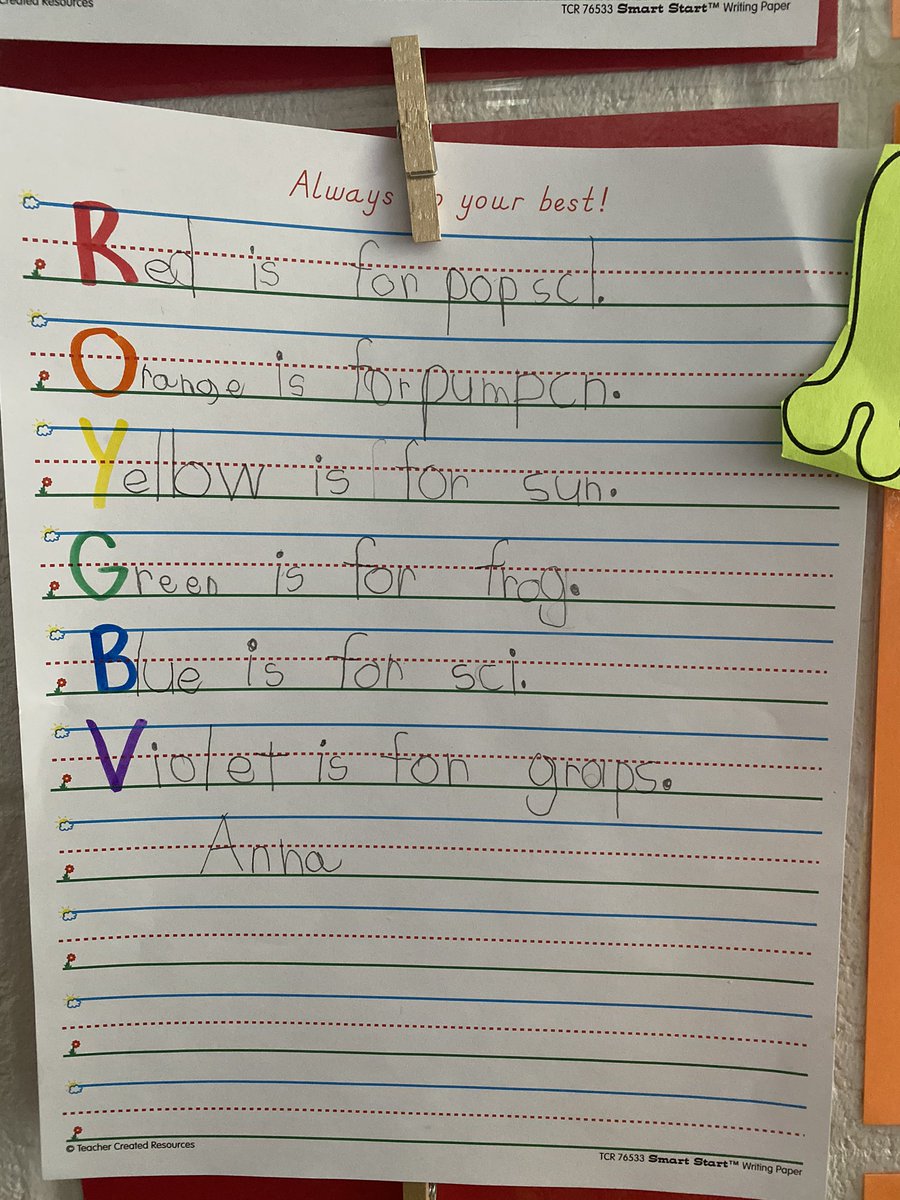 Created Resources
TCR 76533 Smart Start™ Writing Paper
Always your best!
Red is for popscl.
Orange is for pumpcn.
Yellow is for sun.
Green is for frog.
Blue is for sci.
Violet is for graps.
Anna
© Teacher Created Resources
TCR 76533 Smart Start™ Writing Paper